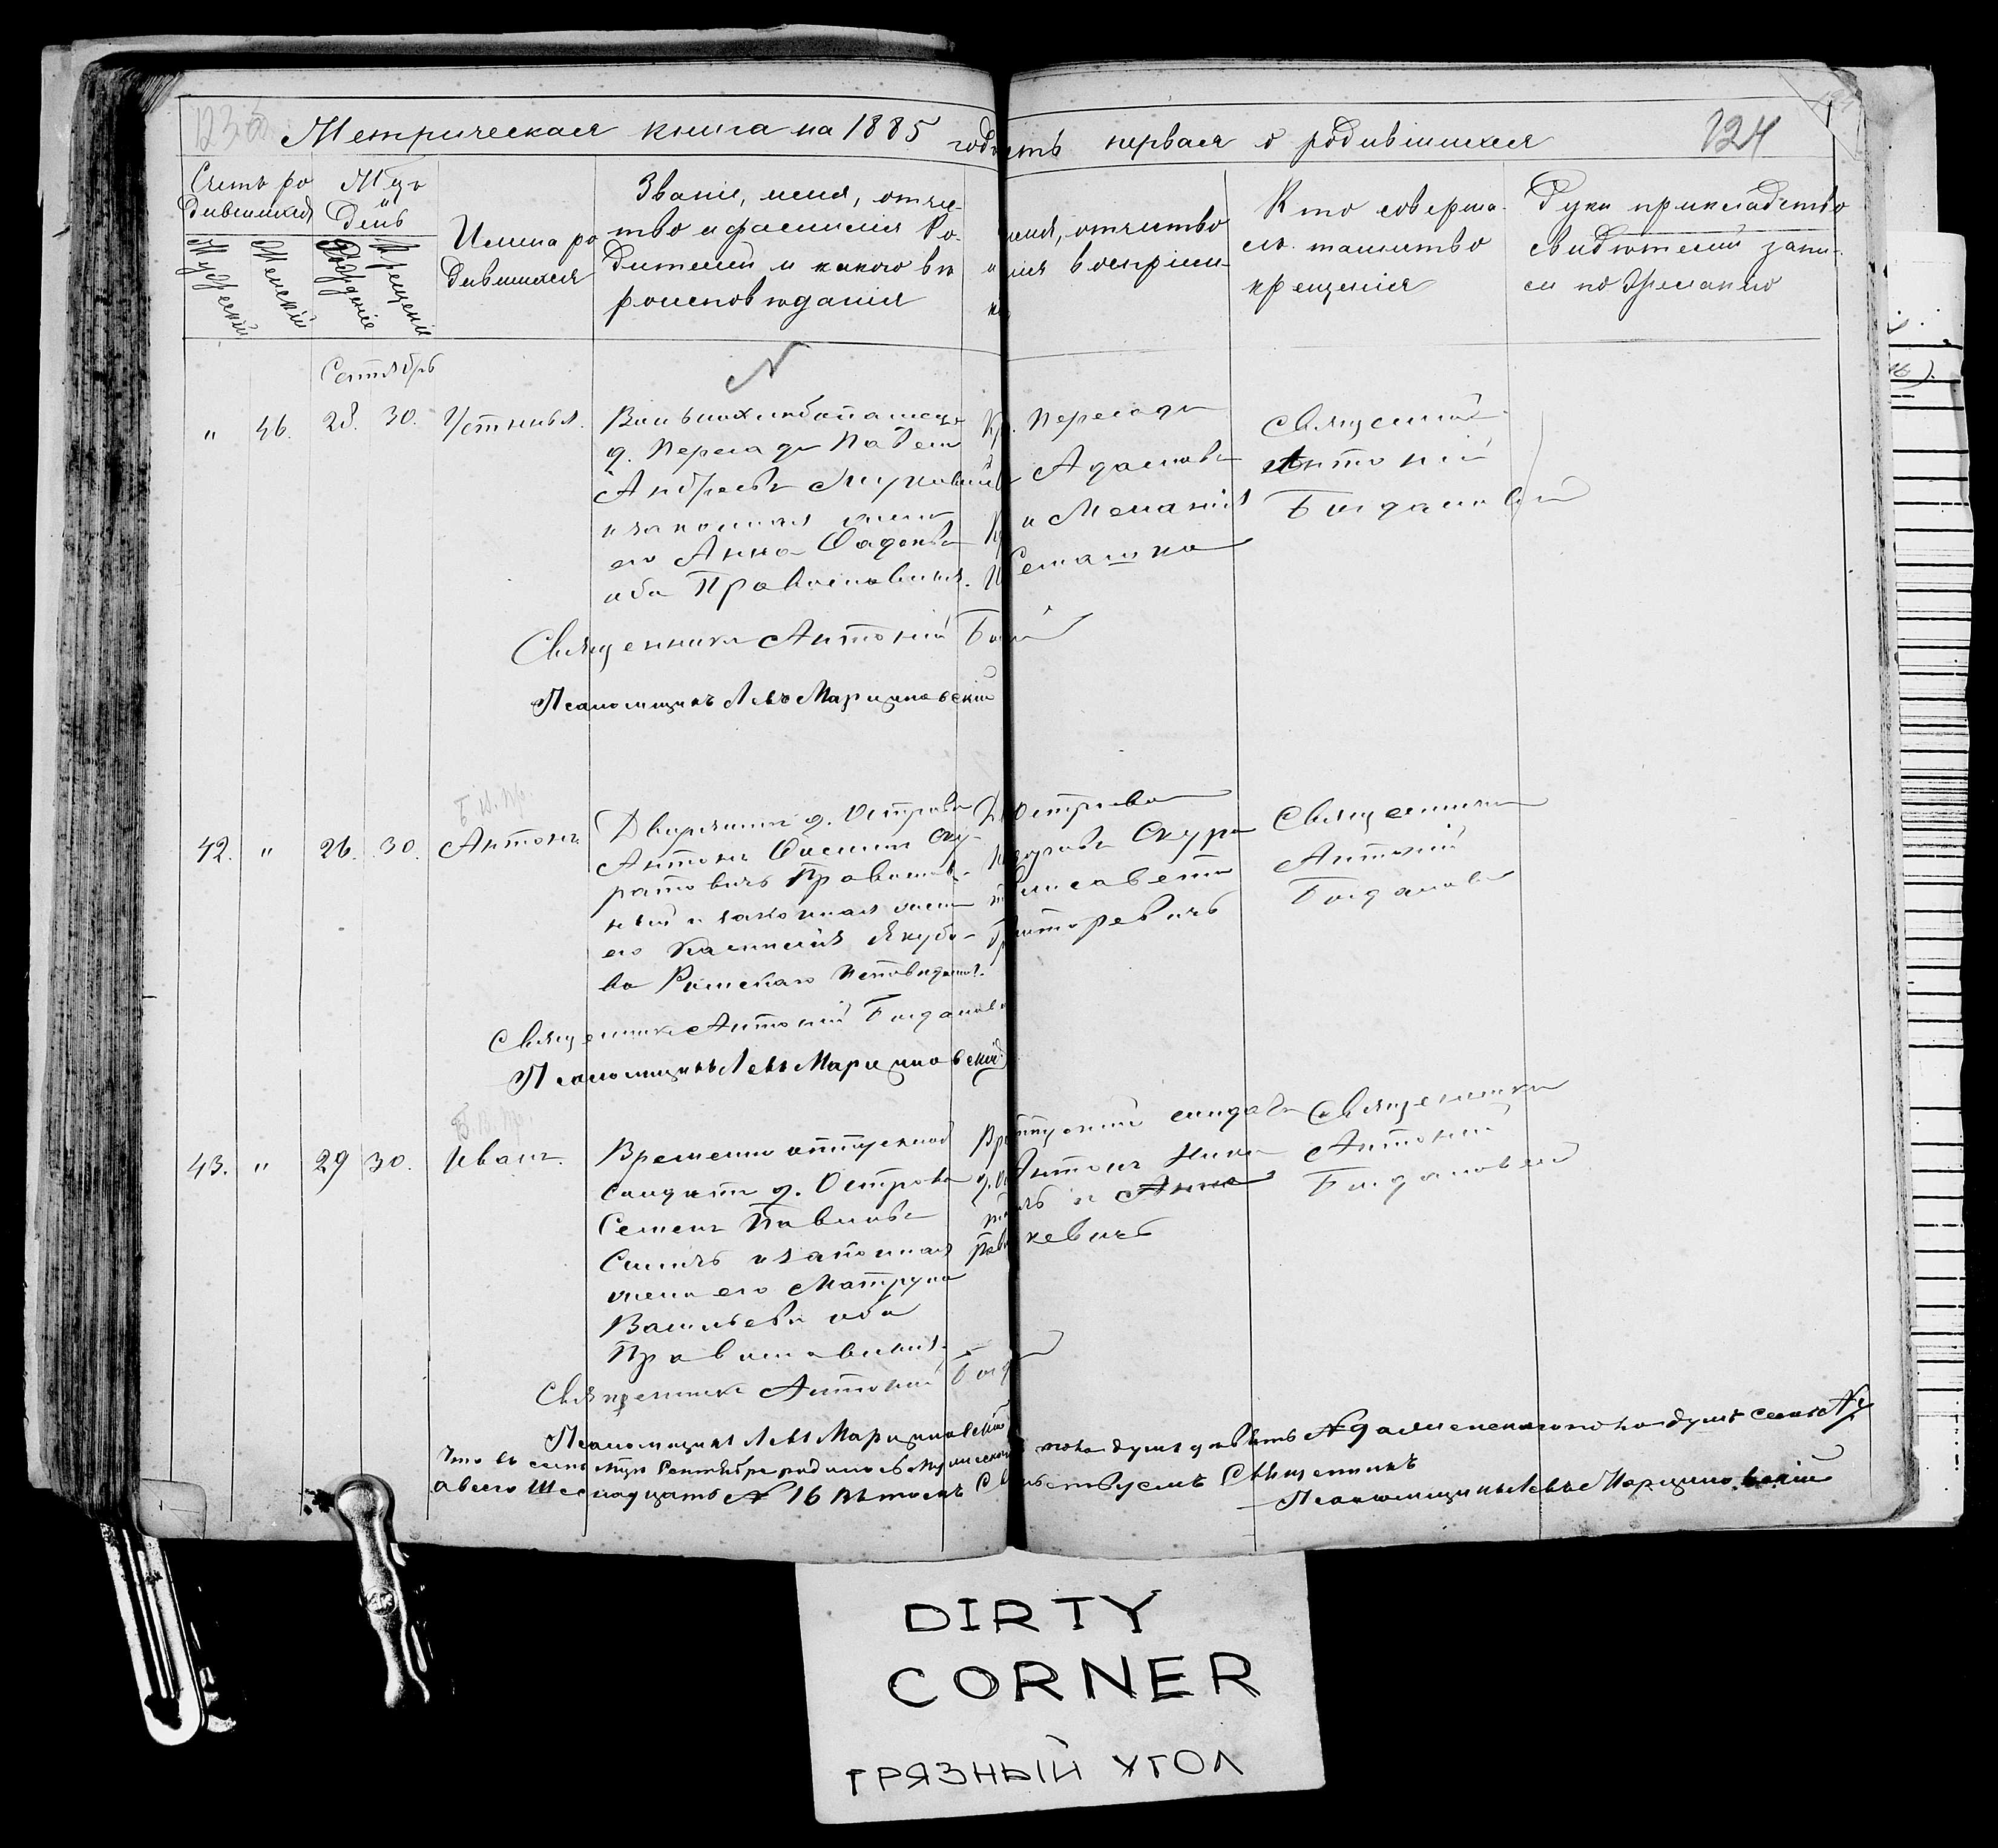 Метрическая книга на 1885 годъ
часть первая о родившихся
124
Счетъ ро
дившихся
Мужескій
Женскій
Мѣц
и
День
Рожденіе
Крещеніе
Имена ро
дившихся
Званіе, имя, отче-
тво и фамилія Ро-
дителей и какого вѣ
роисповѣданія
имя, отчитво
воспріем-
Кто соверша
лъ таинство
крещенія
Рукоприкладство
свидѣтелей запи-
си по желанію
Сентябрь
N
" 46. 28. 30. Устинья.
Вольнохлѣбопашецъ
д. Переходъ Павелъ
Андреевъ
и законная жена
его Анна Фадеева
оба Православныя.
Адамовъ
и Меланія
Семашко
Священникъ
Антоній
Богдановъ
Священникъ Антоній Бог
Псаломщикъ Левъ Марциновскій
Б.И.Пр.
42. " 26. 30. Антонъ
Дворянинъ д. Острова
Антонъ Осиповъ Ску-
ратовичъ Православ-
ный и законная жена
его Камилія Якубо-
ва Римскаго Исповѣданія.
Острова
Скура
Елисавета
Григоревичъ
Священникъ
Антоній
Богдановъ
Священникъ Антоній Богдановъ
Псаломщикъ Левъ Марциновскій
Б.В.Пр.
43. " 29 30. Иванъ.
Временно отпускной
солдатъ д. Острова
Семенъ Павловъ
и законная
жена его Матруна
Васильева оба
Православныя.
отпускній солдатъ
Антонъ
и Анна
кевичъ
Священникъ
Антоній
Богдановъ
Священникъ Антоній Богд
Псаломщикъ Левъ Марциновскій
Что въ семъ мцѣ Сентябрѣ родилось мужескаго пола душъ девять № 9 а женскаго пола душъ семь № 7
а всего Шеснадцать № 16 въ томъ Свидѣтельствуемъ Священникъ
Псаломщикъ Левъ Марциновскій
DIRTY
CORNER
ГРЯЗНЫЙ УГОЛ